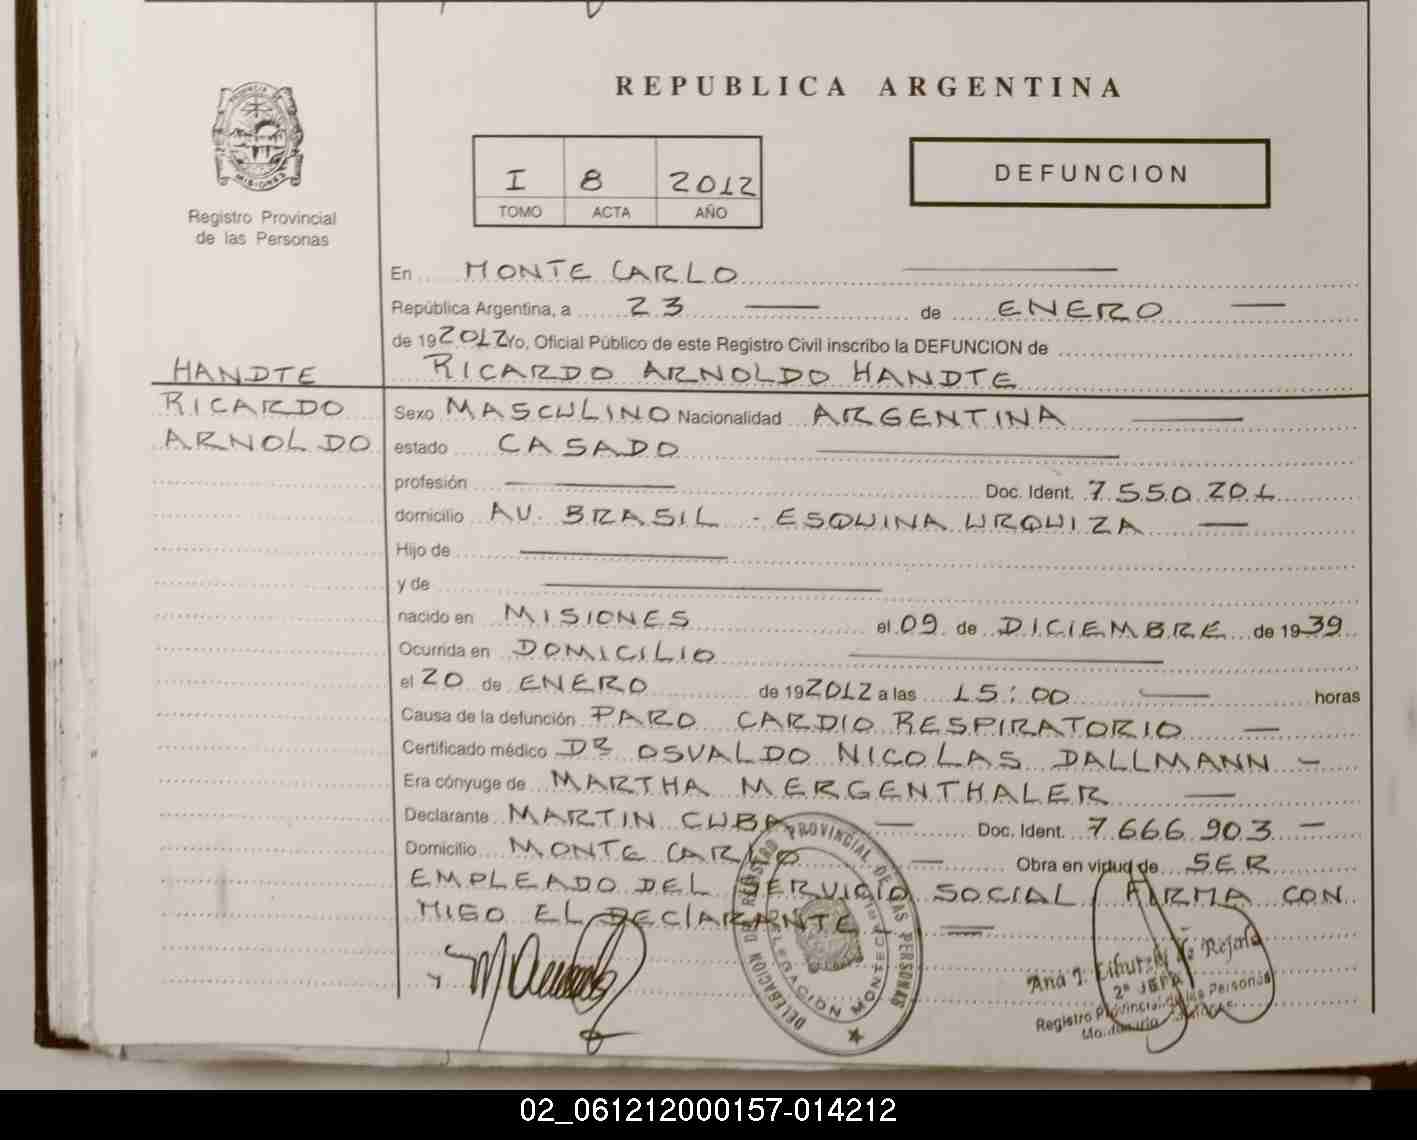 REPUBLICA ARGENTINA
PROVINCIA DE MISIONES
Registro Provincial
de las Personas
I 8 2012
TOMO ACTA AÑO
DEFUNCION
En MONTE CARLO
República Argentina, a 23 de ENERO
de 19 2012 Yo, Oficial Público de este Registro Civil inscribo la DEFUNCION de
RICARDO ARNOLDO HANDTE
HANDTE
RICARDO
ARNOLDO
Sexo MASCULINO Nacionalidad ARGENTINA
estado CASADO
profesión Doc. Ident. 7.550.201
domicilio AV. BRASIL - ESQUINA URQUIZA
Hijo de
y de
nacido en MISIONES el 09 de DICIEMBRE de 1939
Ocurrida en DOMICILIO
el 20 de ENERO de 19 2012 a las 15:00 horas
Causa de la defunción PARO CARDIO RESPIRATORIO
Certificado médico DR OSVALDO NICOLAS DALLMANN
Era cónyuge de MARTHA MERGENTHALER
Declarante MARTIN CUBA Doc. Ident. 7.666.903
Domicilio MONTE CARLO Obra en vidud de SER
EMPLEADO DEL SERVICIO SOCIAL, FIRMA CON
MIGO EL DECLARANTE.-
DELEGACION DE REGISTRO PROVINCIAL DE LAS PERSONAS
DELEGACION MONTECARLO
Ana I. de Rejala
2º JEFA
Registro Provincial de las Personas
02_061212000157-014212